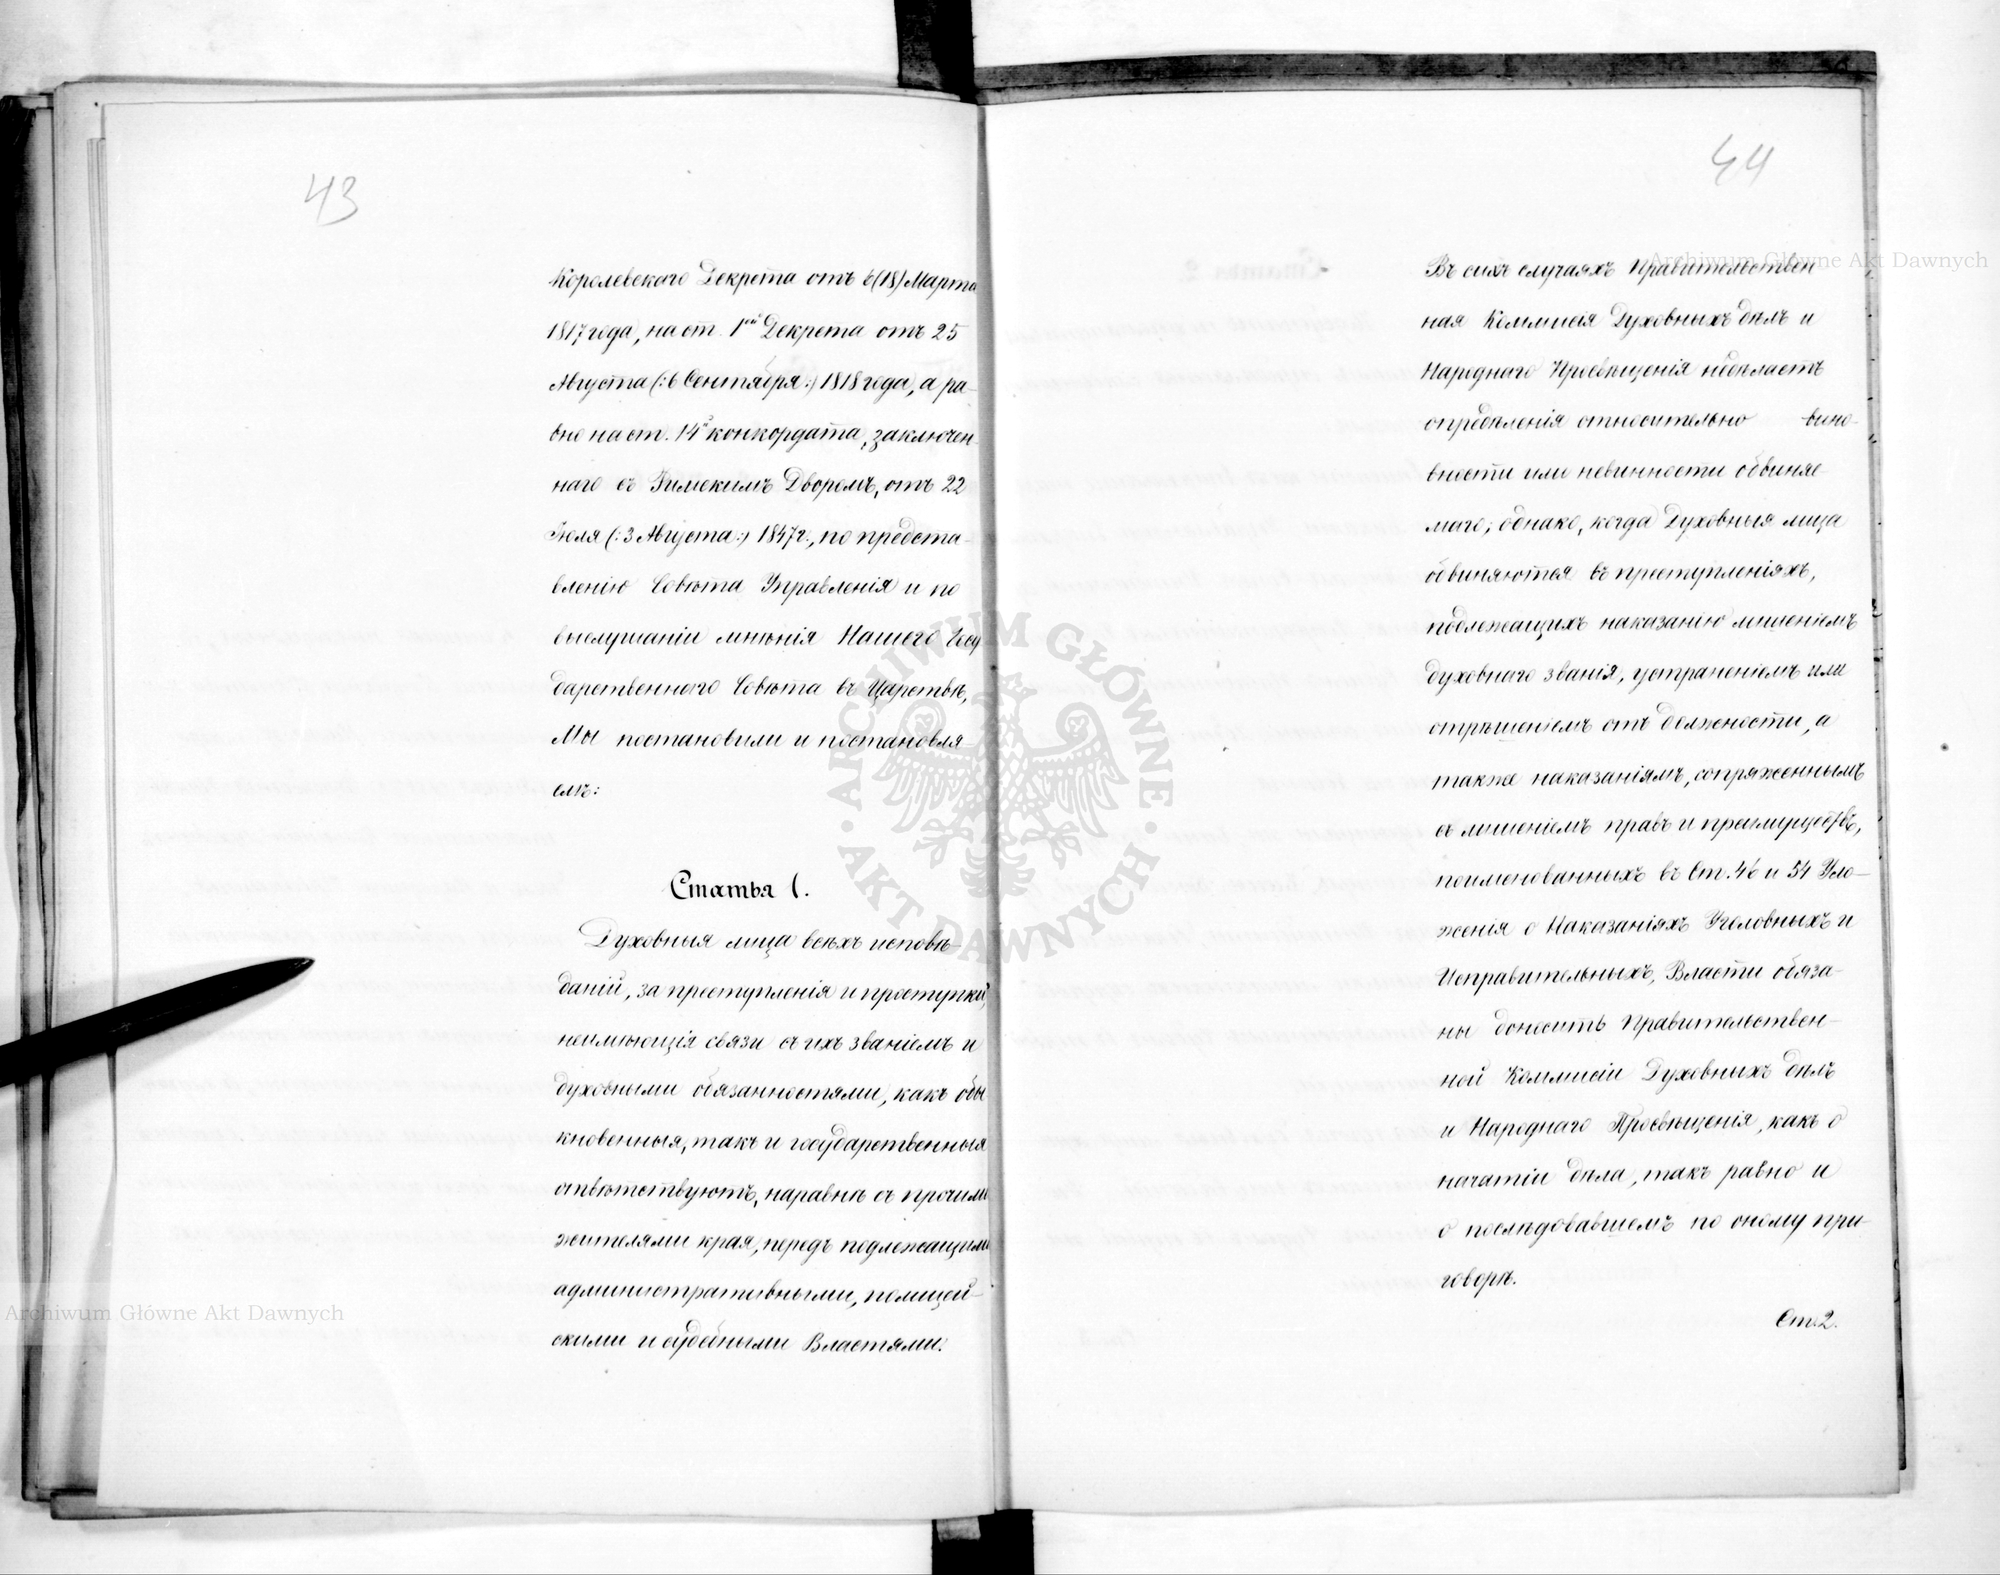 43
Королевскаго Декрета отъ 6 (18) Марта
1817 года, на ст. 1ой Декрета отъ 25
Августа (: 6 Сентября :) 1818 года, а ра-
вно на ст. 14й конкордата, заключен-
наго съ Римскимъ Дворомъ, отъ 22
Іюля (: 3 Августа :) 1847 г., по предста-
вленію Совѣта Управленія и по
выслушаніи мнѣнія Нашего Госу
дарственнаго Совѣта въ Царствѣ,
Мы постановили и постановля-
емъ:
Статья 1.
Духовныя лица всѣхъ исповѣ-
даній, за преступленія и проступки,
неимѣющія связи съ ихъ званіемъ и
духовными обязанностями, какъ обы
кновенныя, такъ и государственныя
отвѣтствуютъ, наравнѣ съ прочими
жителями края, передъ подлежащими
административными, полицей-
скими и судебными Властями.
44
Въ сихъ случаяхъ Правительствен
ная Коммисія Духовныхъ дѣлъ и
Народнаго Просвѣщенія недѣлаетъ
опредѣленія относительно вино-
вности или невинности обвиняе-
маго; однако, когда Духовныя лица
обвиняются въ преступленіяхъ,
подлежащихъ наказанію лишеніемъ
духовнаго званія, устраненіемъ или
отрѣшеніемъ отъ должности, а
также наказаніямъ, сопряженнымъ
съ лишеніемъ правъ и преимуществъ,
поименованныхъ въ Ст. 46 и 54 Уло-
женія о Наказаніяхъ Уголовныхъ и
Исправительныхъ, Власти обяза-
ны доносить Правительствен-
ной Коммисіи Духовныхъ дѣлъ
и Народнаго Просвѣщенія, какъ о
начатіи дѣла, такъ равно и
о послѣдовавшемъ по оному при-
говорѣ.
Ст. 2.
Archiwum Główne Akt Dawnych
ARCHIWUM GŁÓWNE
AKT DAWNYCH
Archiwum Główne Akt Dawnych